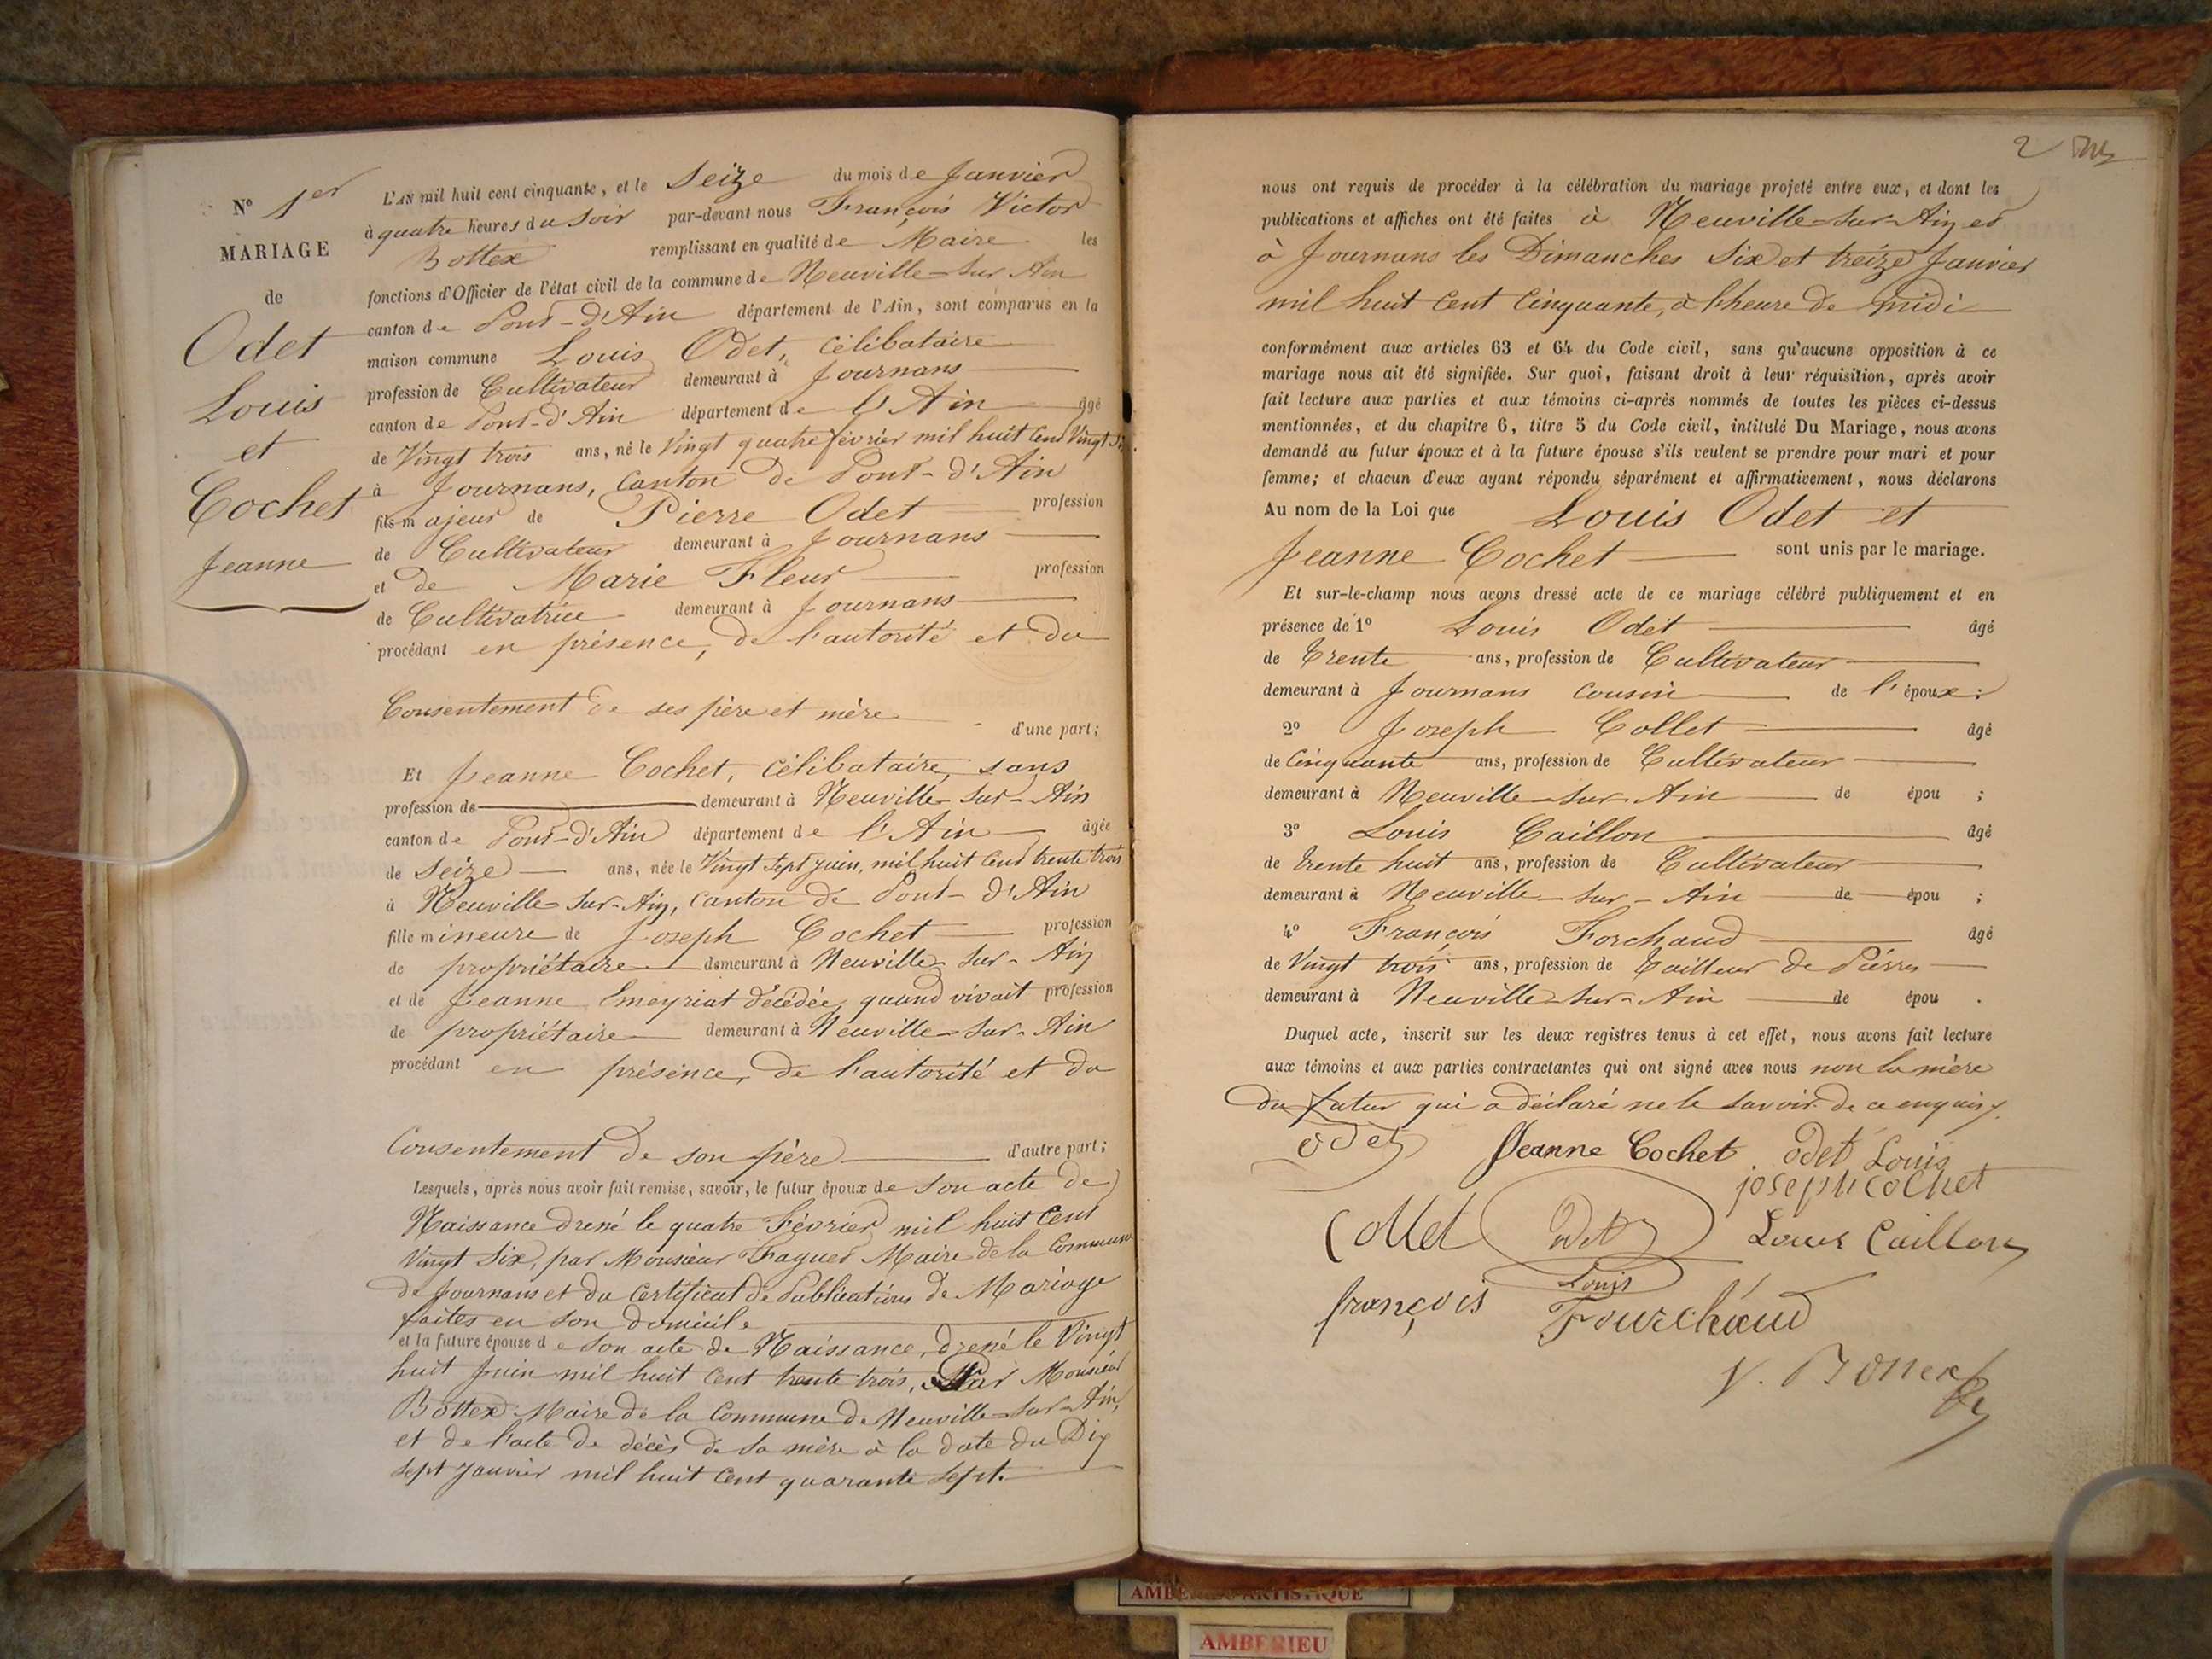 N° 1er
MARIAGE
de
Odet
Louis
et
Cochet
Jeanne
L'AN mil huit cent cinquante, et le Seize du mois de Janvier
à quatre heures du Soir par-devant nous François Victor
Bottex remplissant en qualité de Maire les
fonctions d'Officier de l'état civil de la commune de Neuville-sur-Ain
canton de Pont-d'Ain département de l'Ain, sont comparus en la
maison commune Louis Odet, célibataire
profession de Cultivateur demeurant à Journans
canton de Pont-d'Ain département de l'Ain âgé
de Vingt trois ans, né le Vingt quatre février mil huit Cent Vingt Six
à Journans, Canton de Pont-d'Ain
fils majeur de Pierre Odet profession
de Cultivateur demeurant à Journans
et de Marie Fleur profession
de Cultivatrice demeurant à Journans
procédant en présence, de l'autorité et du
Consentement de ses père et mère
d'une part;
Et Jeanne Cochet, Célibataire, sans
profession de demeurant à Neuville-sur-Ain
canton de Pont-d'Ain département de l'Ain âgée
de Seize ans, née le Vingt sept juin, mil huit Cent trente trois
à Neuville-sur-Ain, Canton de Pont-d'Ain
fille mineure de Joseph Cochet profession
de propriétaire demeurant à Neuville-sur-Ain
et de Jeanne Emeyriat décédée, quand vivait profession
de propriétaire demeurant à Neuville-sur-Ain
procédant en présence, de l'autorité et du
Consentement de son père d'autre part;
Lesquels, après nous avoir fait remise, savoir, le futur époux de Son acte de
Naissance dressé le quatre Février mil huit Cent
Vingt Six, par Monsieur Faguet Maire de la Commune
de Journans et du Certificat de Publications de Mariage
faites en son domicile
et la future épouse de son acte de Naissance, dressé le Vingt
huit Juin mil huit Cent trente trois, Par Monsieur
Bottex Maire de la Commune de Neuville-sur-Ain,
et de l'acte de décès de sa mère à la date du Dix
sept Janvier mil huit Cent quarante sept.
2
nous ont requis de procéder à la célébration du mariage projeté entre eux, et dont les
publications et affiches ont été faites à Neuville-sur-Ain et
à Journans les Dimanches Six et treize Janvier
mil huit Cent Cinquante, à l'heure de midi
conformément aux articles 63 et 64 du Code civil, sans qu'aucune opposition à ce
mariage nous ait été signifiée. Sur quoi, faisant droit à leur réquisition, après avoir
fait lecture aux parties et aux témoins ci-après nommés de toutes les pièces ci-dessus
mentionnées, et du chapitre 6, titre 5 du Code civil, intitulé Du Mariage, nous avons
demandé au futur époux et à la future épouse s'ils veulent se prendre pour mari et pour
femme; et chacun d'eux ayant répondu séparément et affirmativement, nous déclarons
Au nom de la Loi que Louis Odet et
Jeanne Cochet sont unis par le mariage.
Et sur-le-champ nous avons dressé acte de ce mariage célébré publiquement et en
présence de 1° Louis Odet âgé
de Trente ans, profession de Cultivateur
demeurant à Journans Cousin de l'époux;
2° Joseph Collet âgé
de Cinquante ans, profession de Cultivateur
demeurant à Neuville-sur-Ain de épou ;
3° Louis Caillon âgé
de trente huit ans, profession de Cultivateur
demeurant à Neuville-sur-Ain de épou ;
4° François Forchaud âgé
de Vingt trois ans, profession de Tailleur de Pierres
demeurant à Neuville-sur-Ain de épou .
Duquel acte, inscrit sur les deux registres tenus à cet effet, nous avons fait lecture
aux témoins et aux parties contractantes qui ont signé avec nous non la mère
du futur qui a déclaré ne le savoir de ce enquis.
odet Jeanne Cochet odet Louis
joseph cochet
Collet Odet Louis Caillon
Louis
françois Fourchaud
V. Bottex
AMBERIEU ARTISTIQUE
AMBERIEU